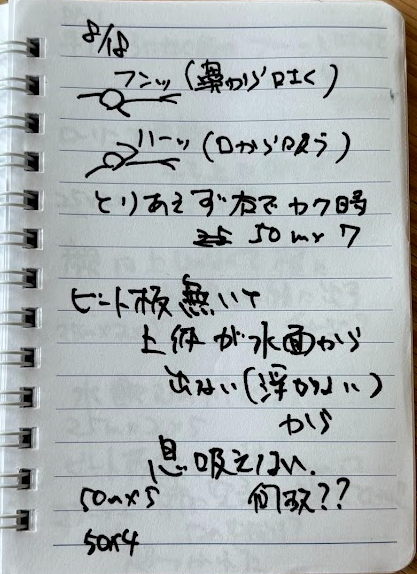 8/18
フンッ(鼻から吐く)
ハーッ(口から吸う)
とりあえず右でカク時
50m×7
ビート板無いて
上体が水面から
出ない(浮かない)
から
息吸えない.
50m×5 何故??
50×4